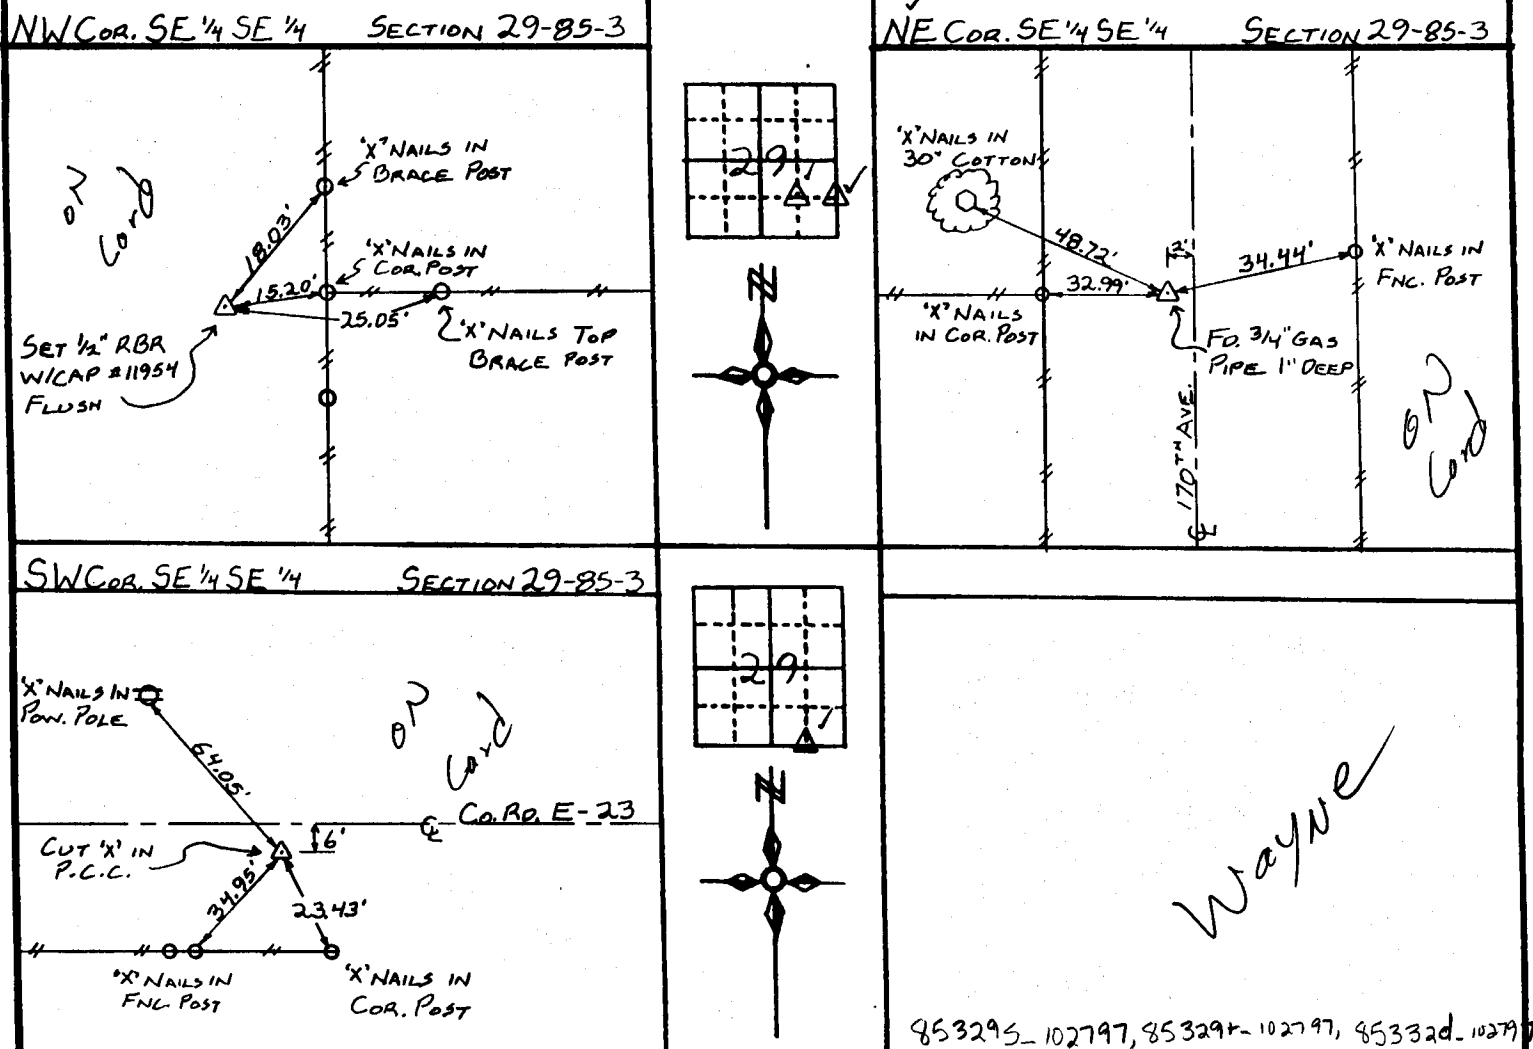 NW COR. SE 1/4 SE 1/4 SECTION 29-85-3
"X" NAILS IN
BRACE POST
ON
Cord
18.03'
"X" NAILS IN
COR. POST
15.20'
25.05'
"X" NAILS TOP
BRACE POST
SET 1/2" RBR
W/CAP #11954
FLUSH
29
N
NE COR. SE 1/4 SE 1/4 SECTION 29-85-3
"X" NAILS IN
30" COTTON
48.72'
2'
34.44'
"X" NAILS IN
FNC. POST
32.99'
"X" NAILS
IN COR. POST
FD. 3/4" GAS
PIPE 1" DEEP
170TH AVE.
CL
ON
Cord
SW COR. SE 1/4 SE 1/4 SECTION 29-85-3
"X" NAILS IN
POW. POLE
ON
Card
64.05'
CL CO. RD. E-23
6'
CUT "X" IN
P.C.C.
34.95'
23.43'
"X" NAILS IN
FNC. POST
"X" NAILS IN
COR. POST
29
N
Wayne
85329s_102797, 85329r_102797, 85332d_102797